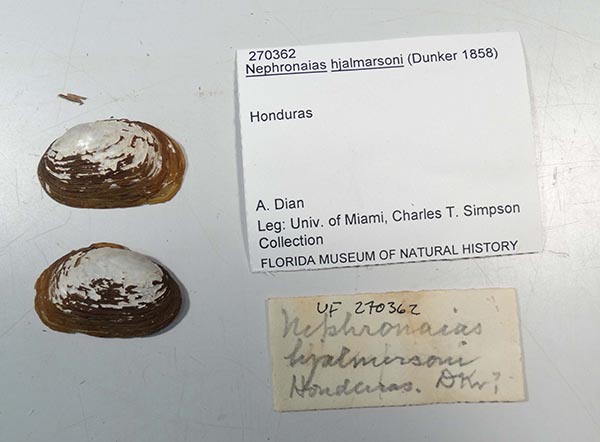 270362
Nephronaias hjalmarsoni (Dunker 1858)
Honduras
A. Dian
Leg: Univ. of Miami, Charles T. Simpson
Collection
FLORIDA MUSEUM OF NATURAL HISTORY
UF 270362
Nephronaias
hjalmersoni
Honduras. Dkr?